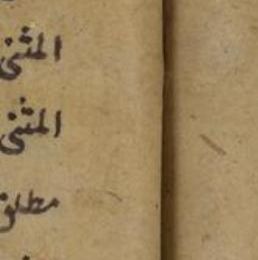 المثنى
المثنى
مطلق